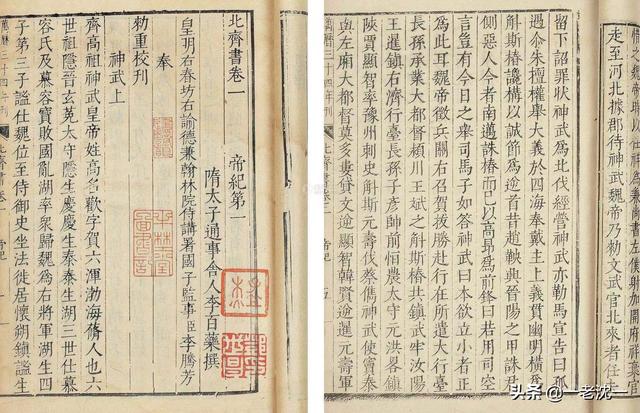 北齊書卷一
帝紀第一
隋太子通事舍人李百藥撰
皇明右春坊右諭德兼翰林院侍講署國子監事臣李騰芳
奉
勅重校刊
神武上
齊高祖神武皇帝姓高名歡字賀六渾渤海脩人也六
世祖隱晉玄菟太守隱生慶慶生泰泰生湖三世仕慕
容氏及慕容寶敗國亂湖率衆歸魏為右將軍湖生四
子第三子謐仕魏位至侍御史坐法徙居懷朔鎮謐生
萬曆三十四年刊
北齊書卷一
帝紀
走至河北據郡待神武魏帝乃勑文武官北來者任
留下詔罪狀神武為北伐經營神武亦勒馬宣告曰孤
遇尒朱擅權舉大義於四海奉戴主上義貫幽明橫為
斛斯椿讒構以誠節為逆首昔趙鞅興晉陽之甲誅君
側惡人今者南邁誅椿而已以高昂為前鋒曰若用司空
言豈有今日之舉司馬子如答神武曰本欲立小者正
為此耳魏帝徵兵關右召賀拔勝赴行在所遣大行臺
長孫承業大都督潁川王斌之斛斯椿共鎮武牢汝陽
王暹鎮石濟行臺長孫子彥帥前恒農太守元洪畧鎮
陝賈顯智率豫州刺史斛斯元壽伐蔡儁神武使竇泰
與左廂大都督莫多婁貸文逆顯智韓賢逆暹元壽軍
萬曆三十四年刊
北齊書卷一
帝紀
五
頭条 @一老沈一